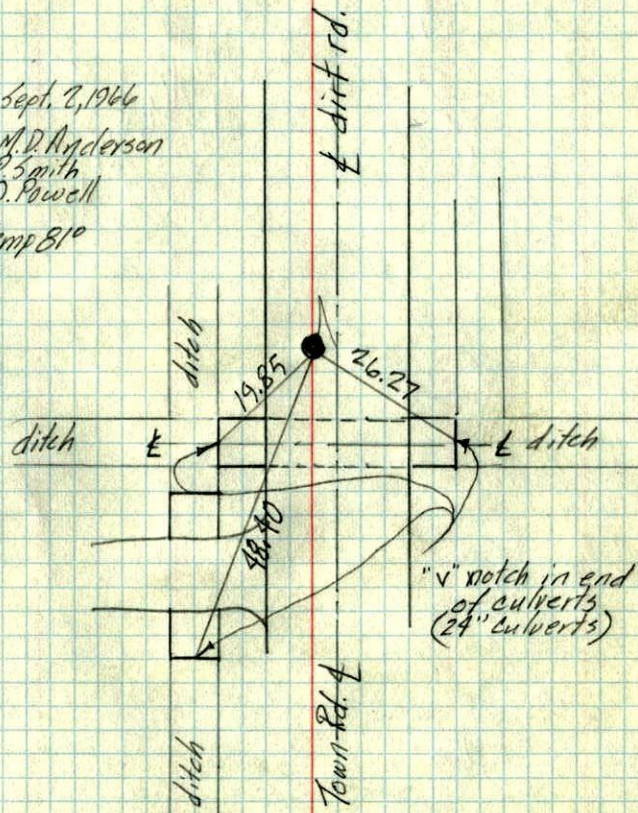 Sept. 2, 1966
M.D. Anderson
P. Smith
O. Powell
mp 81°
℄ dirt rd.
ditch
19.85
26.27
ditch
℄
℄ ditch
48.40
"V" notch in end
of culverts
(24" culverts)
Town Rd. ℄
ditch